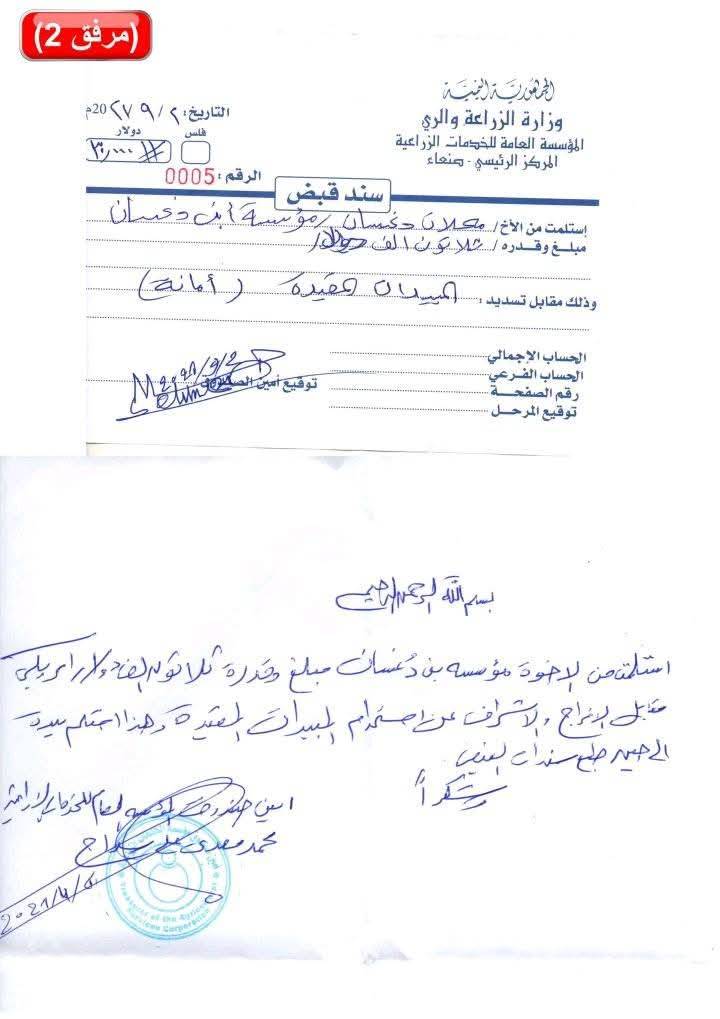 (مرفق 2)
الجمهورية اليمنية
وزارة الزراعة والري
المؤسسة العامة للخدمات الزراعية
المركز الرئيسي - صنعاء
التاريخ: ٢ / ٩ / 20م
فلس دولار
٣٠,٠٠٠
الرقم: 0005
سند قبض
إستلمت من الأخ / محلات دغسان / مؤسسة أبن دغسان
مبلغ وقدره / ثلاثون الف دولار
وذلك مقابل تسديد: المبيدات المقيدة (أمانة)
الحساب الإجمالي
الحساب الفرعي
رقم الصفحة
توقيع المرحل
توقيع أمين الصندوق
بسم الله الرحمن الرحيم
استلمت من الاخوة مؤسسه بن دغسان مبلغ وقدرة ثلاثون الف دولار امريكي
مقابل الافراج والاشراف عن استخدام المبيدات المقيدة وهذا استلام بيدة
الى حين طبع سندات القبض
وشكراً
امين صندوق المؤسسه العامه للخدمات الزراعية
محمد مهدي علي
Services Corporation